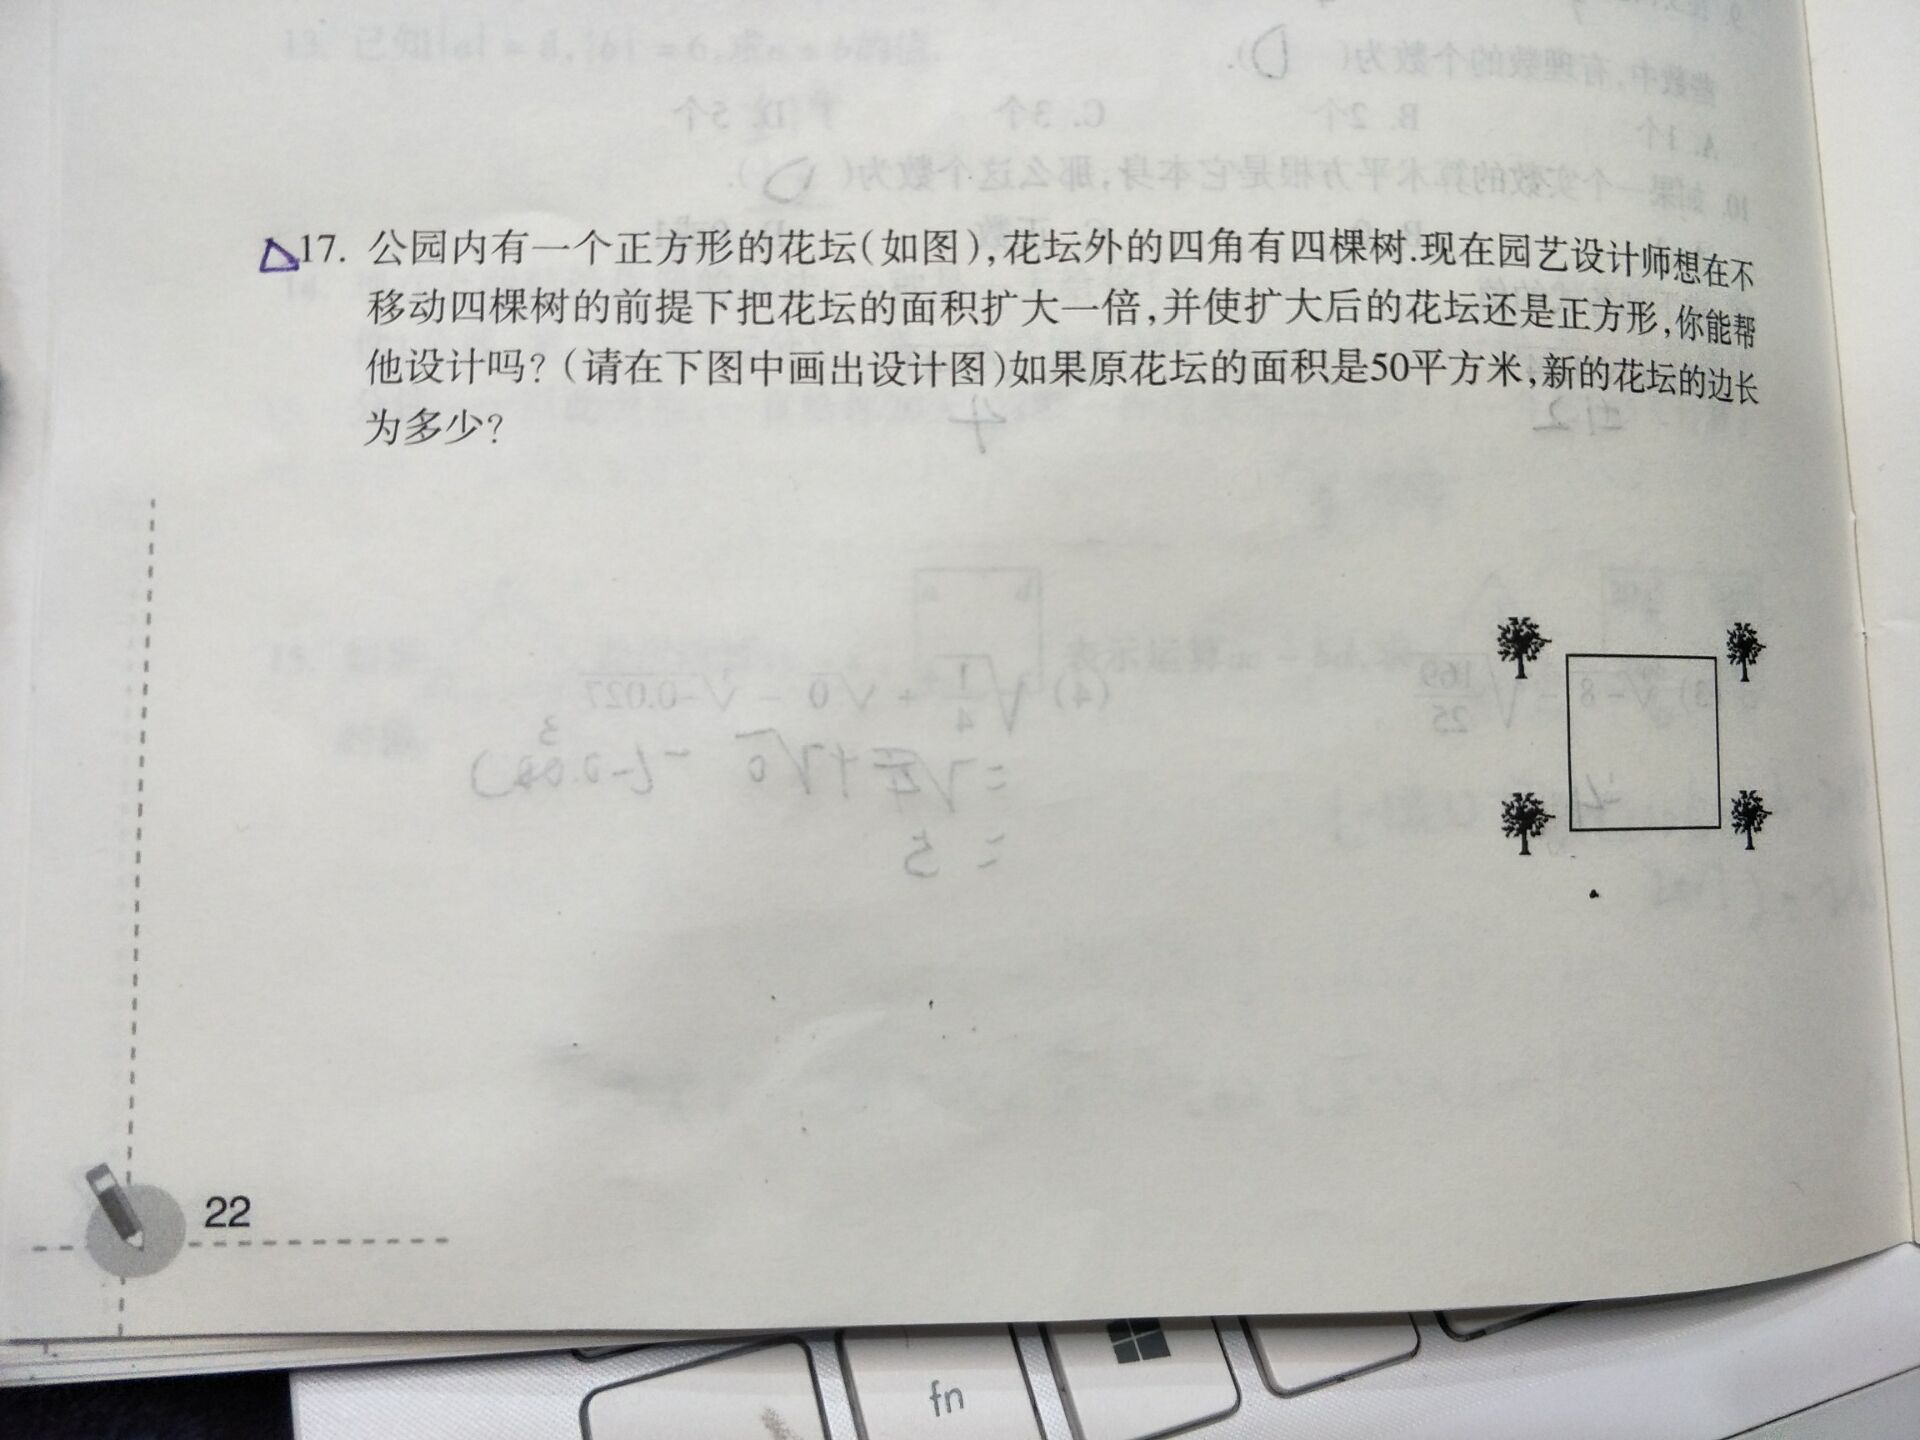 17. 公园内有一个正方形的花坛(如图),花坛外的四角有四棵树.现在园艺设计师想在不
移动四棵树的前提下把花坛的面积扩大一倍,并使扩大后的花坛还是正方形,你能帮
他设计吗?(请在下图中画出设计图)如果原花坛的面积是50平方米,新的花坛的边长
为多少?
22
fn